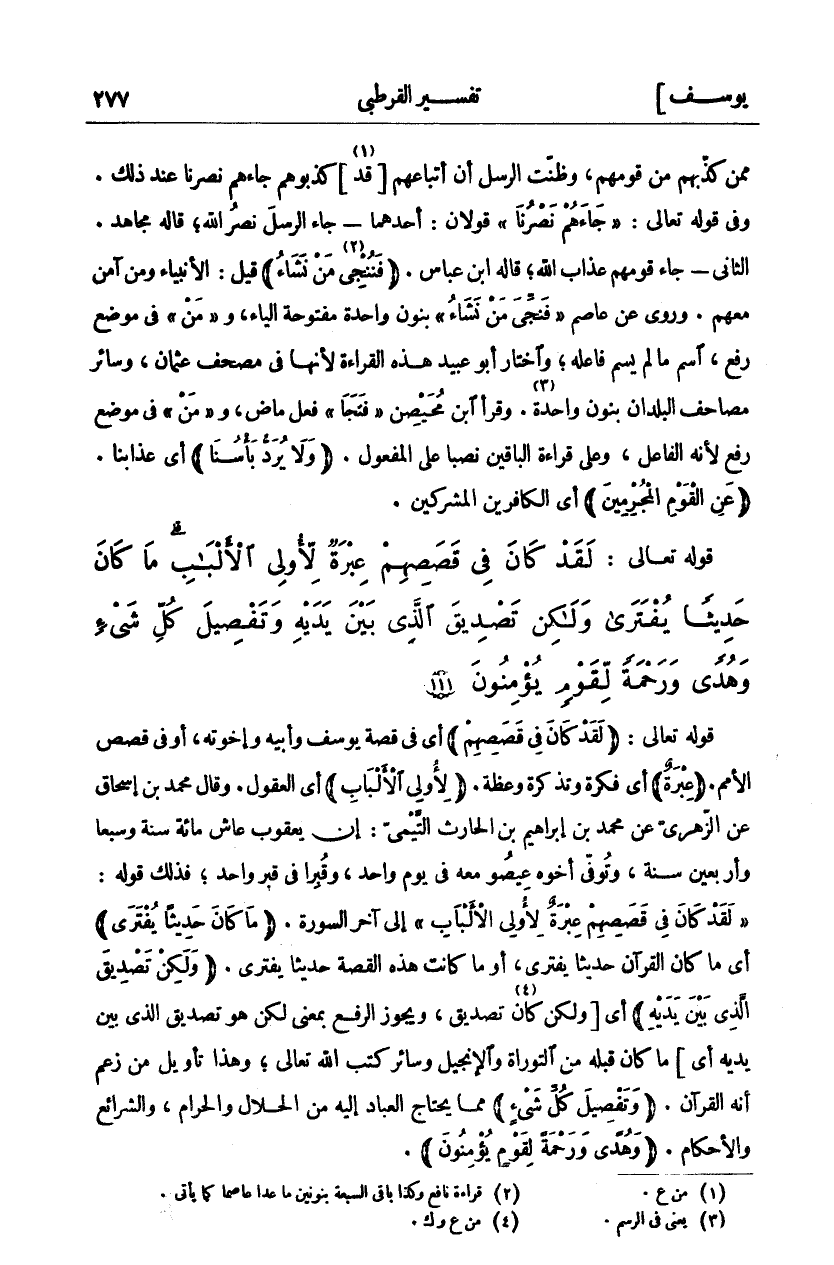 يوسف ]
تفسير القرطبي
٢٧٧
ممن كذّبهم من قومهم، وظنّت الرسل أن أتباعهم [ قد (١) ] كذبوهم جاءهم نصرنا عند ذلك .
وفى قوله تعالى : « جَاءَهُمْ نَصْرُنَا » قولان : أحدهما — جاء الرسلَ نصرُ الله؛ قاله مجاهد .
الثانى — جاء قومهم عذاب الله؛ قاله ابن عباس . ﴿ فَنُنْجِى (٢) مَنْ نَشَاءُ ﴾ قيل : الأنبياء ومن آمن
معهم . وروى عن عاصم « فَنُجِّىَ مَنْ نَشَاءُ » بنون واحدة مفتوحة الياء، و « مَنْ » فى موضع
رفع ، آسم ما لم يسم فاعله ؛ وآختار أبو عبيد هذه القراءة لأنها فى مصحف عثمان ، وسائر
مصاحف البلدان بنون واحدة (٣) . وقرأ آبن مُحَيْصِن « فَنَجَا » فعل ماض، و « مَنْ » فى موضع
رفع لأنه الفاعل ، وعلى قراءة الباقين نصبا على المفعول . ﴿ وَلَا يُرَدُّ بَأْسُنَا ﴾ أى عذابنا .
﴿ عَنِ الْقَوْمِ الْمُجْرِمِينَ ﴾ أى الكافرين المشركين .
قوله تعالى : لَقَدْ كَانَ فِى قَصَصِهِمْ عِبْرَةٌ لِّأُولِى ٱلْأَلْبَـٰبِ ۗ مَا كَانَ
حَدِيثًا يُفْتَرَىٰ وَلَـٰكِن تَصْدِيقَ ٱلَّذِى بَيْنَ يَدَيْهِ وَتَفْصِيلَ كُلِّ شَىْءٍ
وَهُدًى وَرَحْمَةً لِّقَوْمٍ يُؤْمِنُونَ ١١١
قوله تعالى : ﴿ لَقَدْ كَانَ فِى قَصَصِهِمْ ﴾ أى فى قصة يوسف وأبيه وإخوته، أو فى قصص
الأمم. ﴿عِبْرَةٌ﴾ أى فكرة وتذكرة وعظة. ﴿ لِأُولِى ٱلْأَلْبَابِ ﴾ أى العقول. وقال محمد بن إسحاق
عن الزّهرىّ عن محمد بن إبراهيم بن الحارث التَّيْمىّ : إن يعقوب عاش مائة سنة وسبعا
وأربعين سنة ، وتُوفّى أخوه عِيصُو معه فى يوم واحد ، وقُبِرا فى قبر واحد ؛ فذلك قوله :
« لَقَدْ كَانَ فِى قَصَصِهِمْ عِبْرَةٌ لِأُولِى الْأَلْبَابِ » إلى آخر السورة . ﴿ مَا كَانَ حَدِيثًا يُفْتَرَى ﴾
أى ما كان القرآن حديثا يفترى، أو ما كانت هذه القصة حديثا يفترى . ﴿ وَلَكِنْ تَصْدِيقَ
الَّذِى بَيْنَ يَدَيْهِ ﴾ أى [ ولكن كان (٤) تصديق ، ويجوز الرفع بمعنى لكن هو تصديق الذى بين
يديه أى ] ما كان قبله من آلتوراة وآلإنجيل وسائر كتب الله تعالى ؛ وهذا تأويل من زعم
أنه القرآن . ﴿ وَتَفْصِيلَ كُلِّ شَىْءٍ ﴾ مما يحتاج العباد إليه من الحلال والحرام ، والشرائع
والأحكام . ﴿ وَهُدًى وَرَحْمَةً لِقَوْمٍ يُؤْمِنُونَ ﴾ .
(١) من ع .
(٢) قراءة نافع وكذا باقى السبعة بنونين ما عدا عاصما كما يأتى .
(٣) يعنى فى الرسم .
(٤) من ع وك .